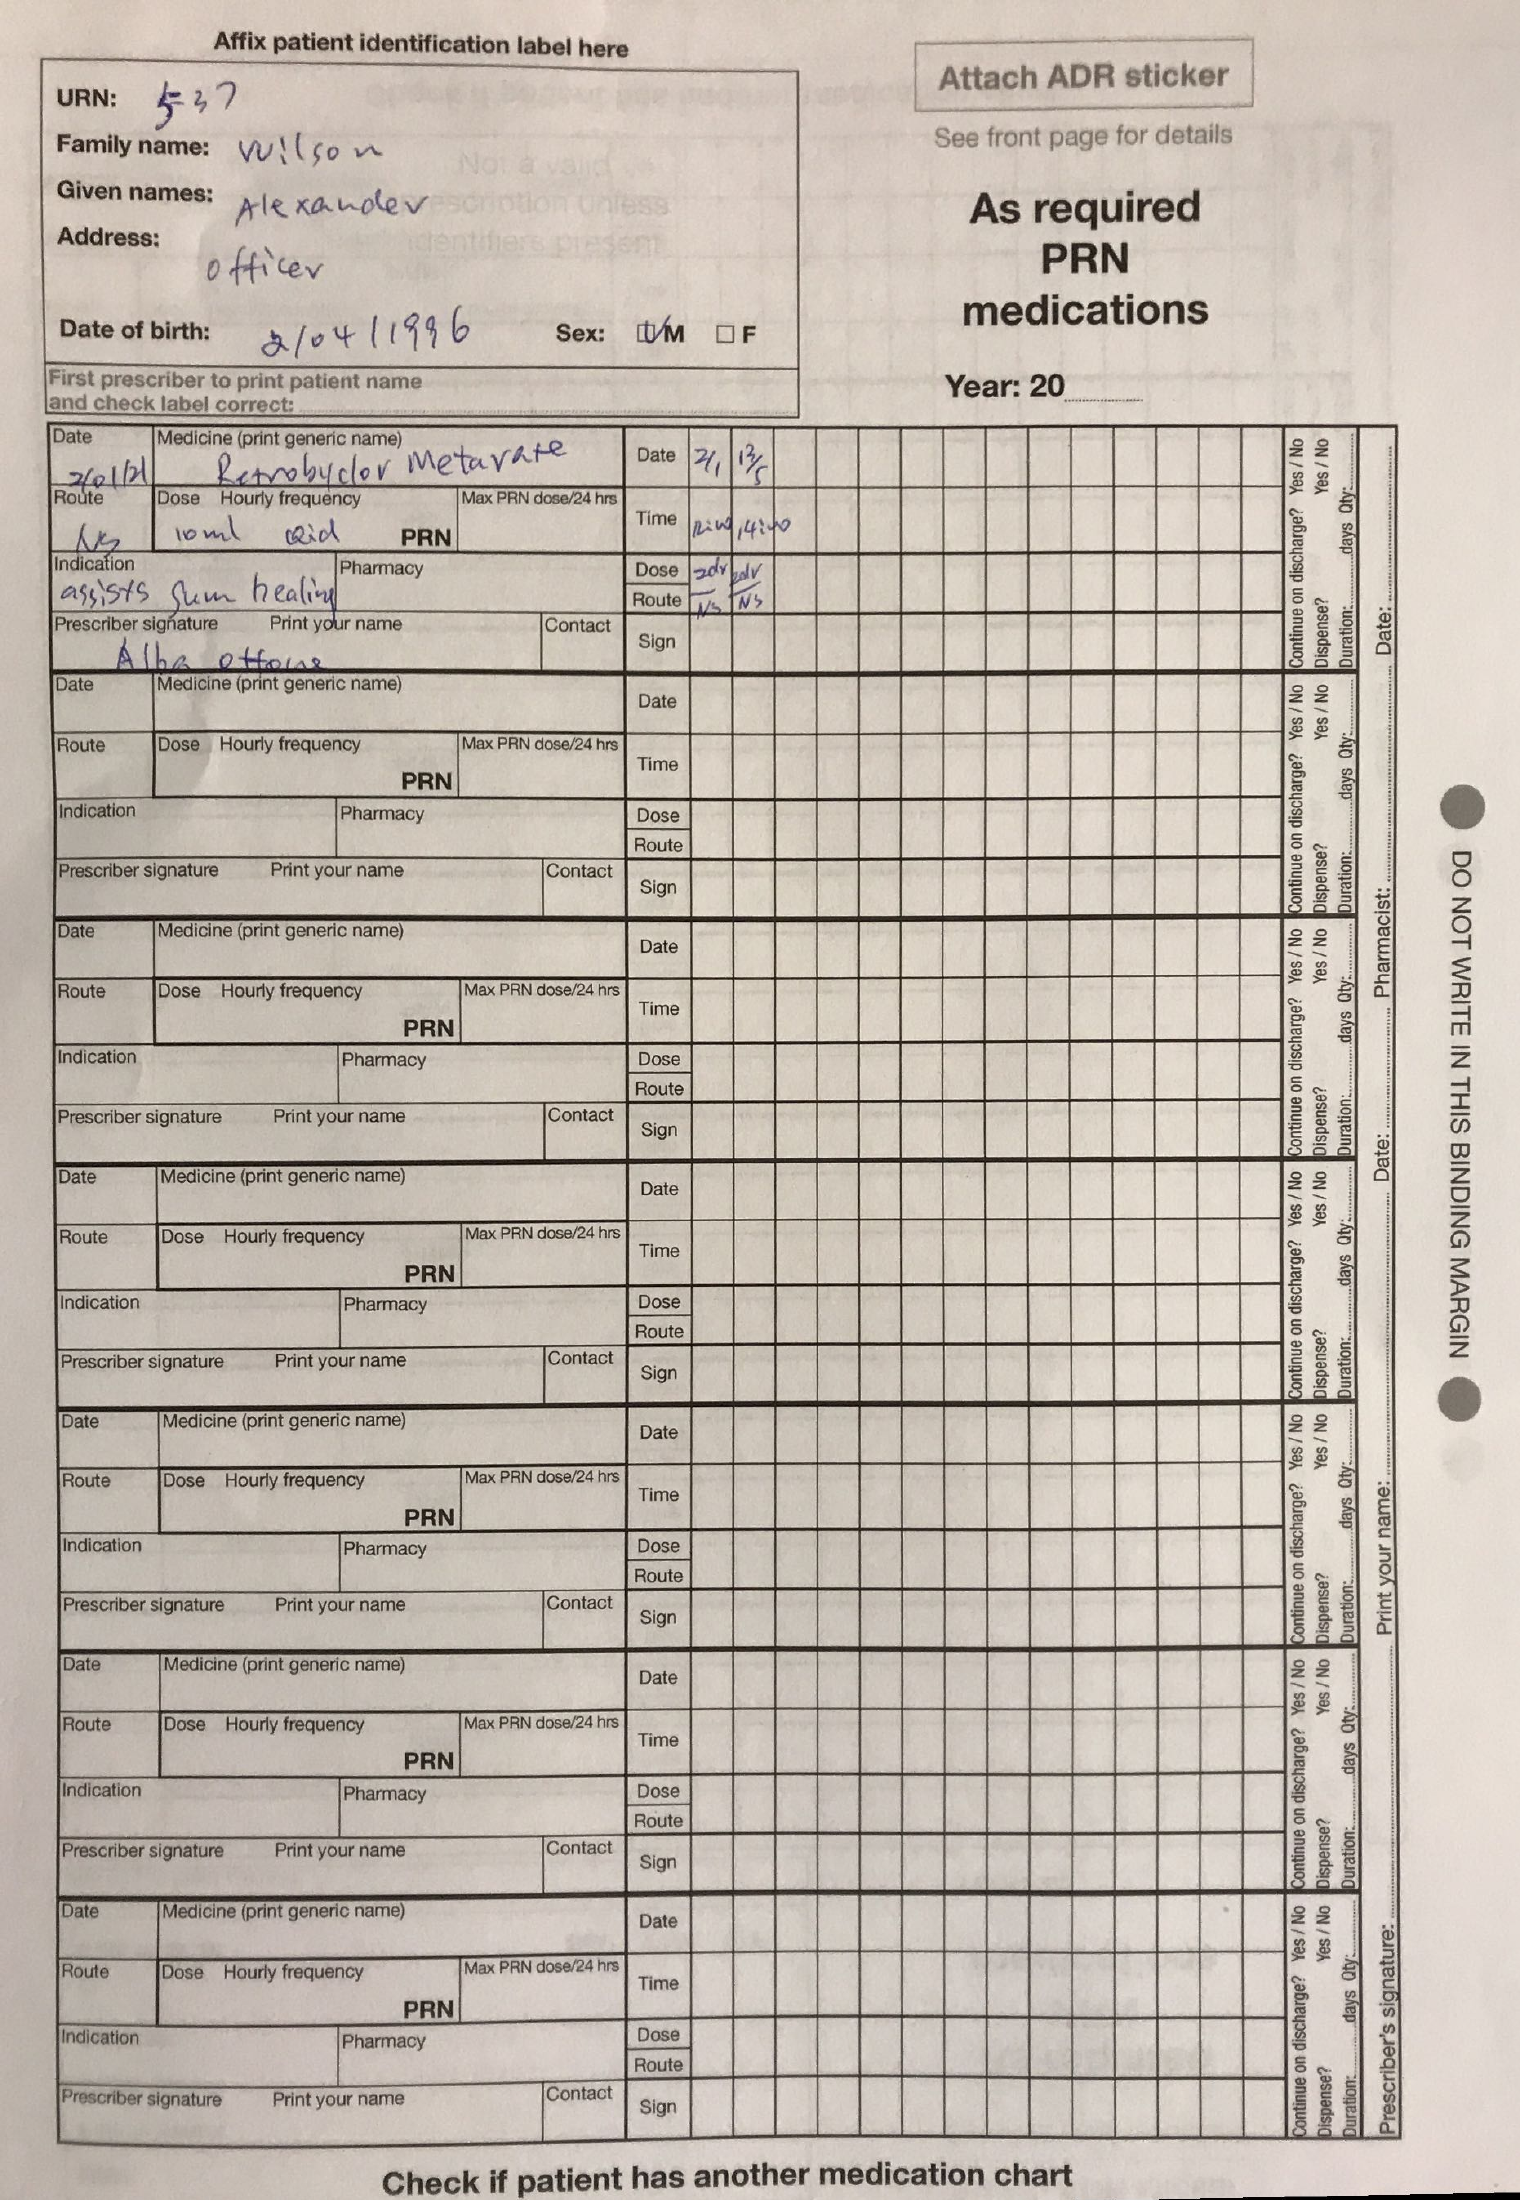 Affix patient identification label here
URN: 537
Family name: Wilson
Given names: Alexander
Address:
officer
Date of birth: 2/04/1996 Sex: M F
First prescriber to print patient name
and check label correct:
Attach ADR sticker
See front page for details
As required
PRN
medications
Year: 20
Date Medicine (print generic name) Date 2/1 13/5
2/01/21 Metavate
Route Dose Hourly frequency Max PRN dose/24 hrs Time
NS 10ml Qid PRN
Indication Pharmacy Dose 2dr 2dr
assists gum healing Route NS NS
Prescriber signature Print your name Contact Sign
Alba
Continue on discharge? Yes / No
Dispense? Yes / No
Duration: days Qty:
Date Medicine (print generic name) Date
Route Dose Hourly frequency Max PRN dose/24 hrs Time
PRN
Indication Pharmacy Dose
Route
Prescriber signature Print your name Contact Sign
Continue on discharge? Yes / No
Dispense? Yes / No
Duration: days Qty:
Date Medicine (print generic name) Date
Route Dose Hourly frequency Max PRN dose/24 hrs Time
PRN
Indication Pharmacy Dose
Route
Prescriber signature Print your name Contact Sign
Continue on discharge? Yes / No
Dispense? Yes / No
Duration: days Qty:
Date Medicine (print generic name) Date
Route Dose Hourly frequency Max PRN dose/24 hrs Time
PRN
Indication Pharmacy Dose
Route
Prescriber signature Print your name Contact Sign
Continue on discharge? Yes / No
Dispense? Yes / No
Duration: days Qty:
Date Medicine (print generic name) Date
Route Dose Hourly frequency Max PRN dose/24 hrs Time
PRN
Indication Pharmacy Dose
Route
Prescriber signature Print your name Contact Sign
Continue on discharge? Yes / No
Dispense? Yes / No
Duration: days Qty:
Date Medicine (print generic name) Date
Route Dose Hourly frequency Max PRN dose/24 hrs Time
PRN
Indication Pharmacy Dose
Route
Prescriber signature Print your name Contact Sign
Continue on discharge? Yes / No
Dispense? Yes / No
Duration: days Qty:
Date Medicine (print generic name) Date
Route Dose Hourly frequency Max PRN dose/24 hrs Time
PRN
Indication Pharmacy Dose
Route
Prescriber signature Print your name Contact Sign
Continue on discharge? Yes / No
Dispense? Yes / No
Duration: days Qty:
Prescriber's signature: Print your name: Date: Pharmacist: Date:
DO NOT WRITE IN THIS BINDING MARGIN
Check if patient has another medication chart